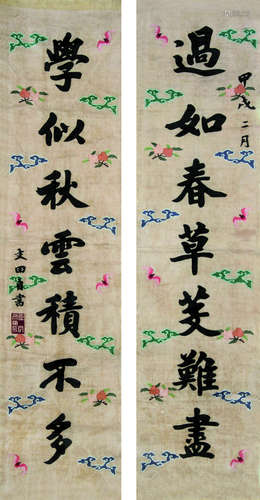 過如春草芟難盡
甲戌二月
學似秋雲積不多
文田書